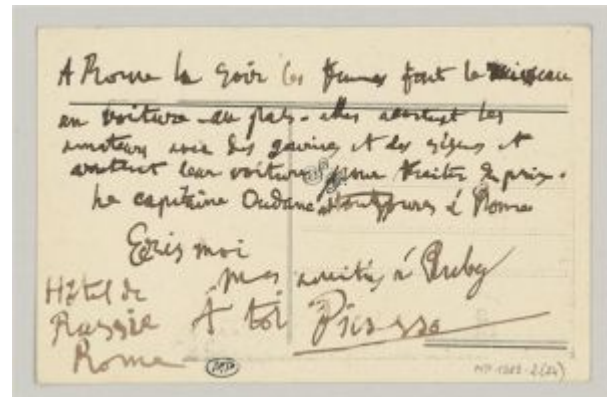 A Rome le soir les femmes font le
en voiture au pas. elles accostent les
amateurs avec des sourires et des signes et
arretent leur voitures pour traiter du prix.
Le capitaine est toujours à Rome
Ecris moi
mes amitiés à Ruby
Hôtel de
Russie
Rome
A toi Picasso
MP